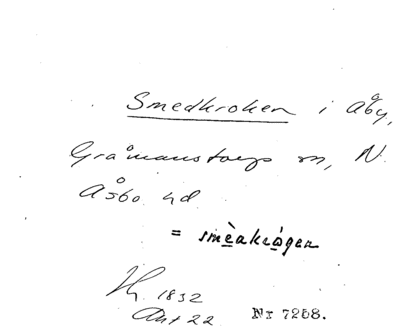 Smedkroken i Åby,
Gråmanstorps sn, N.
Åsbo hd
= smèakrågen
1832
22 Nr 7268.